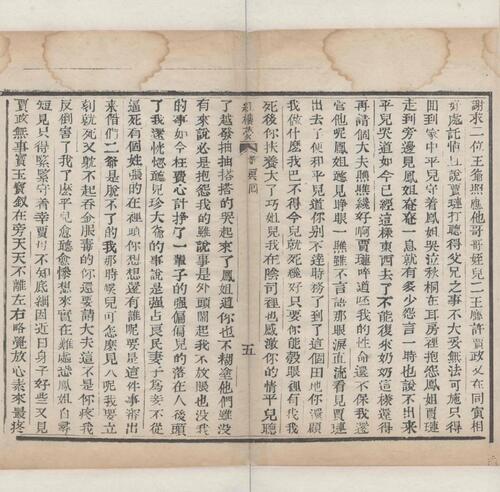 謝求二位王爺照應他哥哥姪兒二王應許賈政又在同寅相
好處託情且說賈璉打聽得父兄之事不大妥無法可施只得
回到家中平兒守着鳳姐哭泣秋桐在耳房裡抱怨鳳姐賈璉
走到旁邊見鳳姐奄奄一息就有多少怨言一時也說不出來
平兒哭道如今已經這樣東西去了不能復來奶奶這樣還得
再請個大夫瞧瞧纔好啊賈璉啐道呸我的性命還不保我還
管他呢鳳姐聽見睜眼一瞧雖不言語那眼淚直流看見賈璉
出去了便和平兒道你別不達時務了到了這個田地你還顧
我做什麽我巴不得今兒就死纔好只要你能彀眼裡有我我
死後你扶養大了巧姐兒我在陰司裡也感激你的情平兒聽
紅樓夢 第一百六回 五
了越發抽抽搭搭的哭起來了鳳姐道你也不糊塗他們雖沒
有來說必是抱怨我的雖說事是外頭鬧起我不放賬也沒我
的事如今枉費心計挣了一輩子的強偏偏兒的落在人後頭
了我還恍惚聽見珍大爺的事說是強占良民妻子爲妾不從
逼死有個姓張的在裡頭你想想還有誰呢要是這件事審出
來偺們二爺是脫不了的我那時候兒可怎麽見人呢我要立
刻就死又躭不起吞金服毒的你還要請大夫這不是你疼我
反倒害了我了麽平兒愈聽愈慘想來實在難處恐鳳姐自尋
短見只得緊緊守着幸賈母不知底細因近日身子好些又見
賈政無事寶玉寶釵在旁天天不離左右略覺放心素來最疼